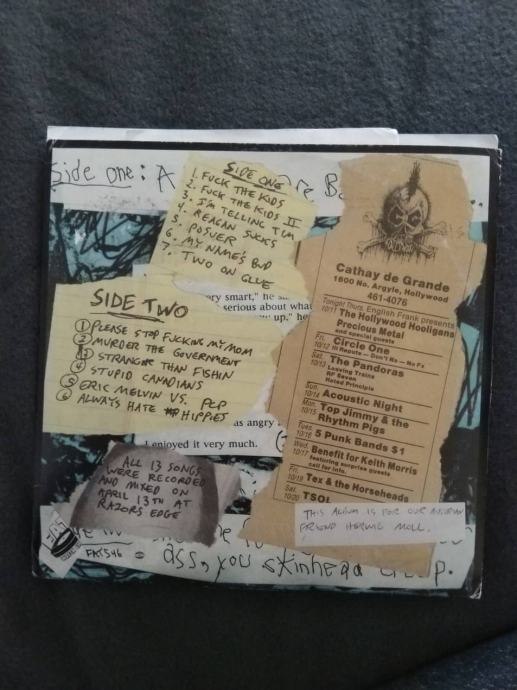 Side One: A
SIDE ONE
1. FUCK THE KIDS
2. FUCK THE KIDS II
3. I'M TELLING TIM
4. REAGAN SUCKS
5. POSUER
6. MY NAME'S BUD
7. TWO ON GLUE
ery smart," he
serious about what
w up," he
SIDE TWO
① PLEASE STOP FUCKING MY MOM
② MURDER THE GOVERNMENT
③ STRANGER THAN FISHIN
④ STUPID CANADIANS
⑤ ERIC MELVIN VS. PCP
⑥ ALWAYS HATE HIPPIES
as angry
I enjoyed it very much.
ALL 13 SONGS
WERE RECORDED
AND MIXED ON
APRIL 13TH AT
RAZORS EDGE
FAT546
ass, you skinhead
Cathay de Grande
1600 No. Argyle, Hollywood
461-4076
Tonight Thurs. English Frank presents
10/11 The Hollywood Hooligans
Precious Metal
and special guests
Fri. 10/12 Circle One
Ill Repute — Don't No — No Fx
Sat. 10/13 The Pandoras
Leaving Trains
RF Seven
Hated Principle
Sun. 10/14 Acoustic Night
Mon. 10/15 Top Jimmy & the
Rhythm Pigs
Tues. 10/16 5 Punk Bands $1
Wed. 10/17 Benefit for Keith Morris
featuring surprise guests
call for info.
Fri. 10/19 Tex & the Horseheads
Sat. 10/20 TSOL
THIS ALBUM IS FOR OUR
FRIEND HERWIG MOLL.